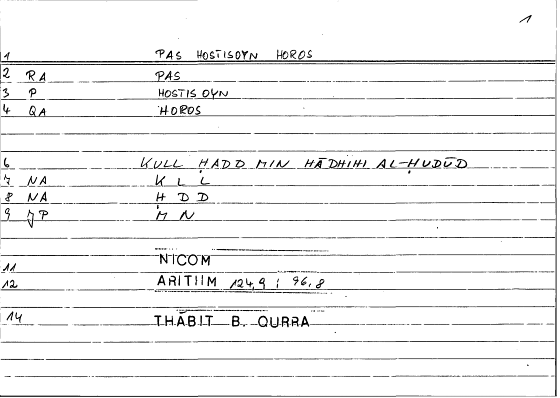 1
1 PAS HOSTISOYN HOROS
2 RA PAS
3 P HOSTISOYN
4 QA HOROS
6 KULL ḤADD MIN HĀDHIHI AL-ḤUDŪD
7 NA K L L
8 NA Ḥ D D
9 P M N
11 NICOM
12 ARITIIM 124,9 ; 96,8
14 THĀBIT B. QURRA